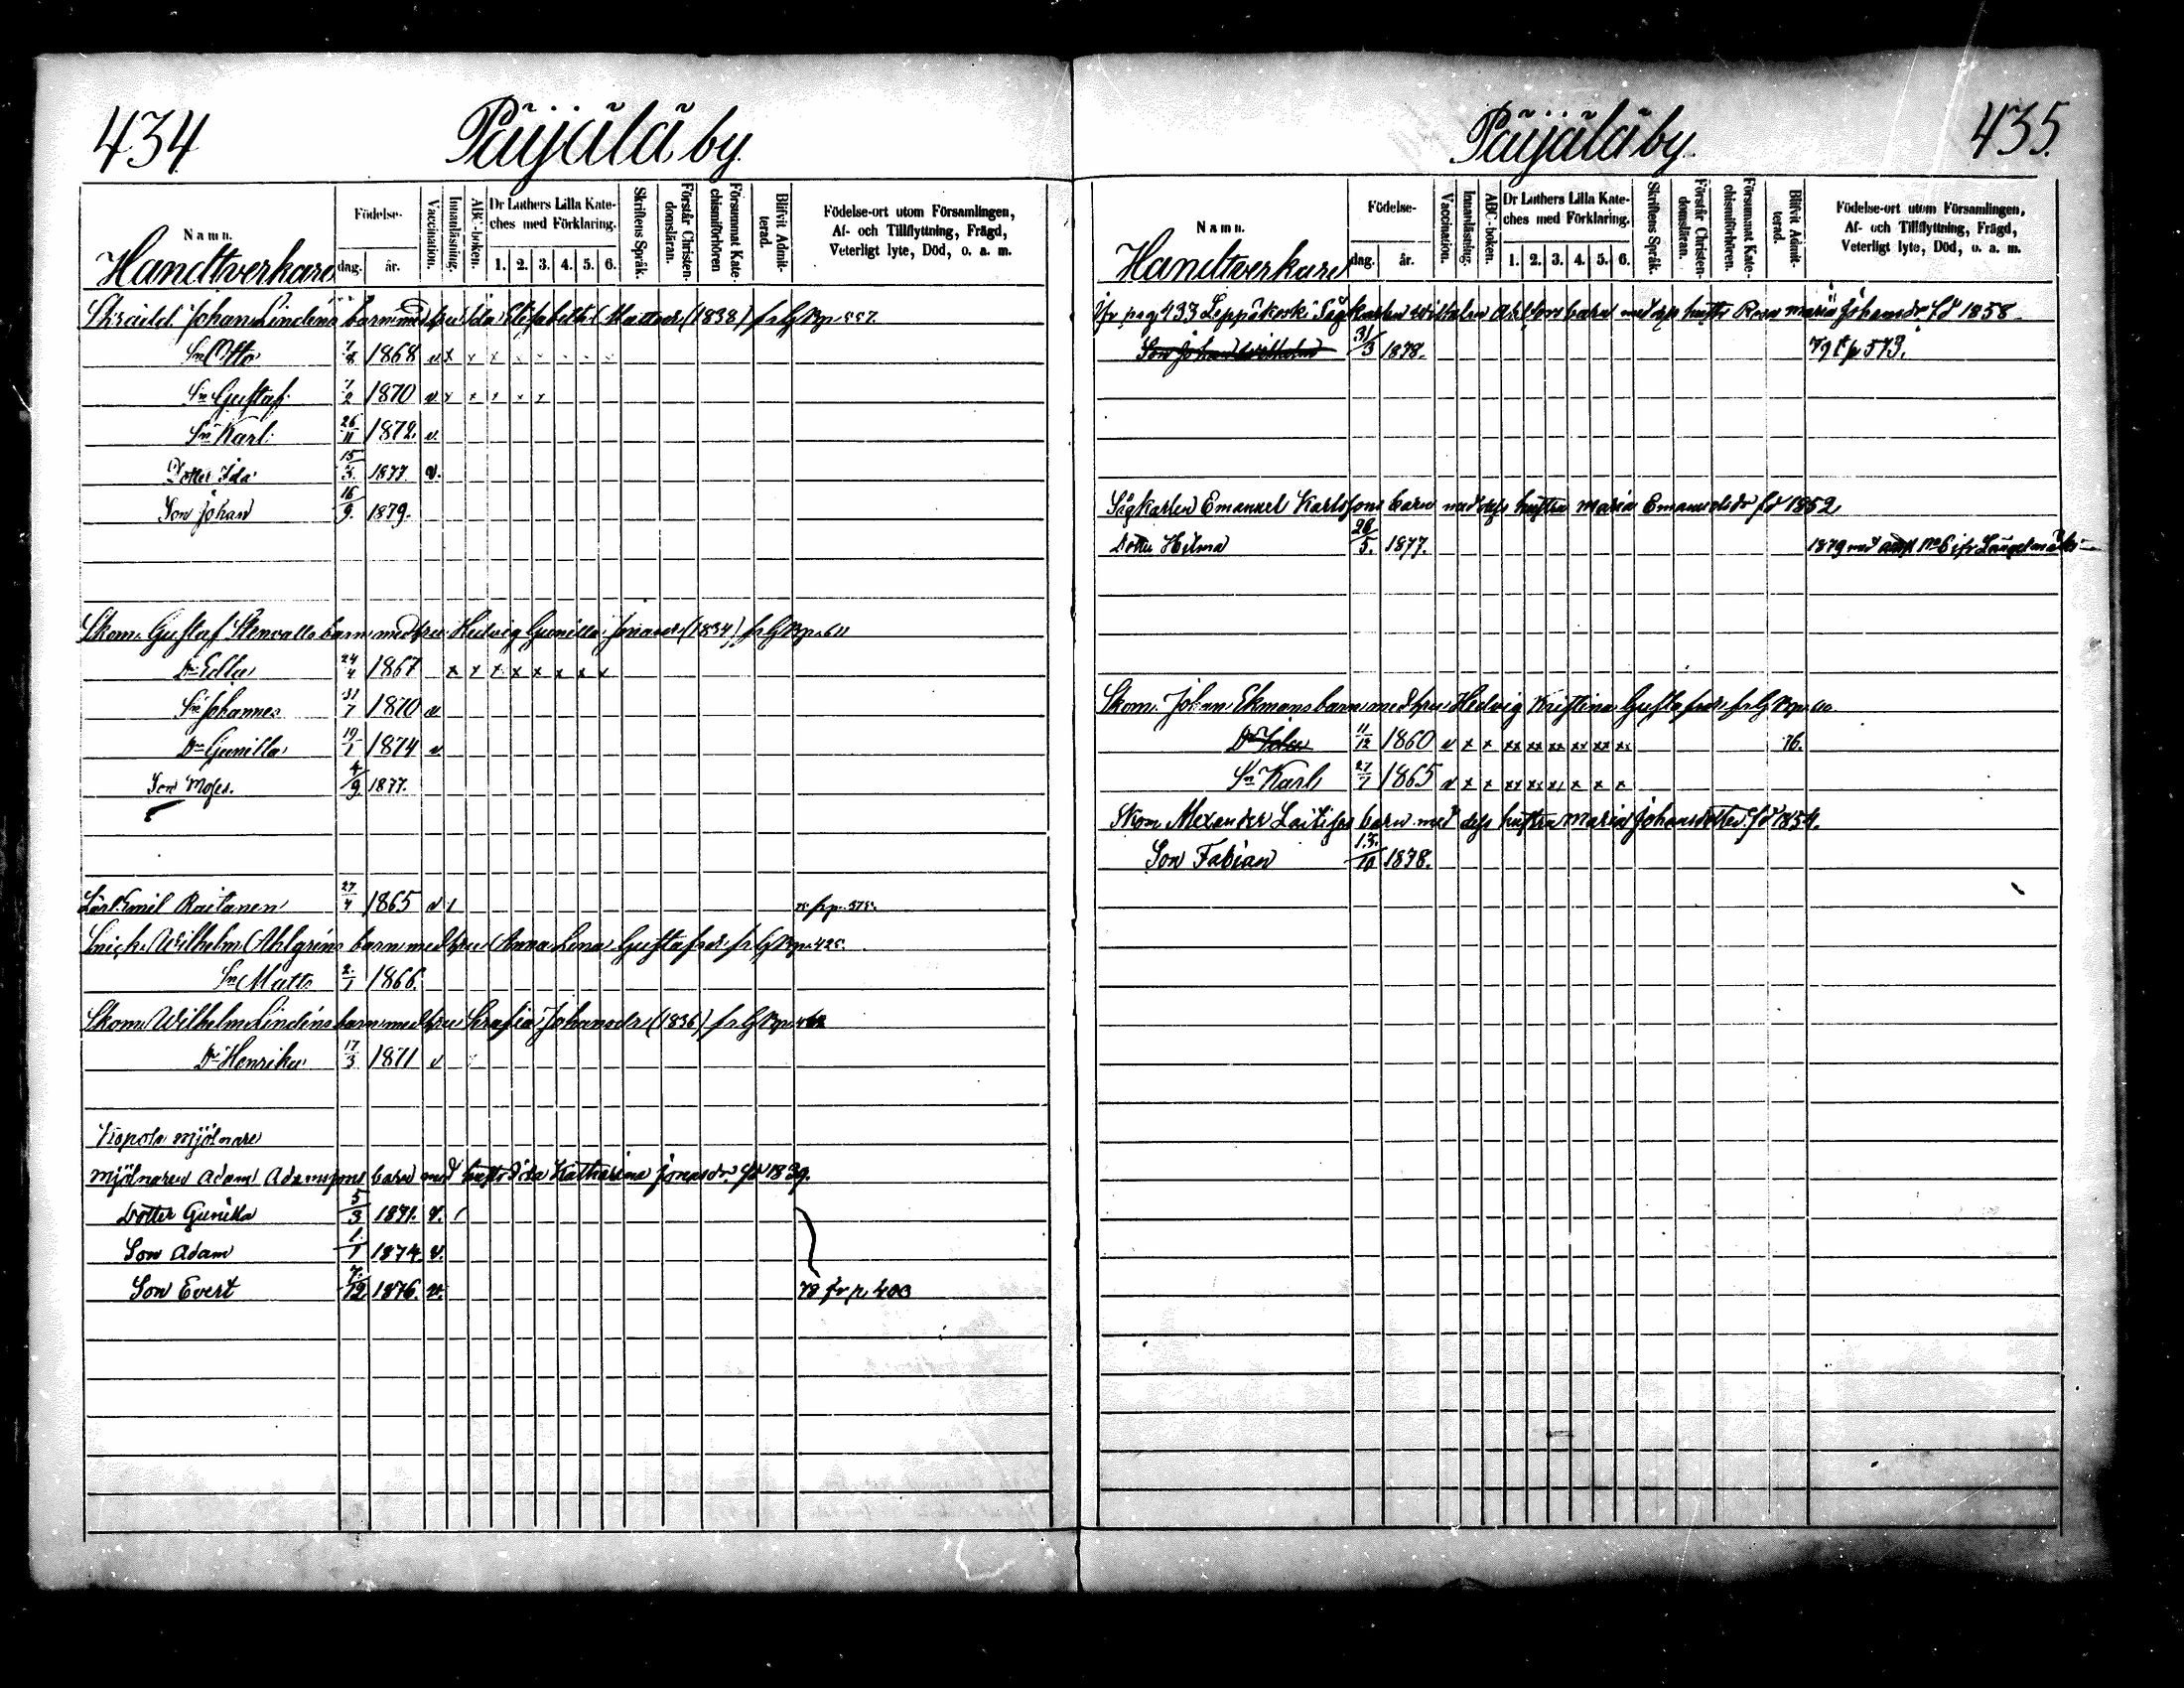 434 Päijälä by.
Namn. Födelse- dag. år. Vaccination. Innanläsning. ABC-boken. Dr Luthers Lilla Kateches med Förklaring. 1. 2. 3. 4. 5. 6. Skriftens Språk. Förstår Christendomsläran. Försummat Katechismiförhören Blifvit Admitterad. Födelse-ort utom Församlingen, Af- och Tillflyttning, Frägd, Veterligt lyte, Död, o. a. m.
Handtverkare
Johan Lindéns barn med hru Ida Elisabeth Mattsdr (1838) 557.
Sn Otto 7/8 1868 v x x x
Sn Gustaf 7/2 1870 v x x x x x
Sn Karl 26/11 1872. v.
Dotter Ida 15/3. 1877. v.
Son Johan 16/9. 1879.
Skom. Gustaf Stenvalls barn med hru Hedvig Gunilla (1834) 611
Dr Edla 24/4 1867 x x x x x x x x
Sn Johannes 31/7 1870 v
Dr Gunilla 19/1 1874 v
Son Moses. 4/9 1877.
Emil Raitanen 27/4 1865 v
Wilhelm Ahlgréns barn med hru Anna Lena Gustafsdr
Sn Matts 2/1 1866.
Skom. Wilhelm Lindéns barn med hru Serafia Johansdr (1836)
Dr Henrika 17/3 1871 v
Mjölnare
Mjölnaren Adam Adamssons barn med hustr Ida Katharina Jonasdr. fd 1839.
Dotter Gunilla 5/3 1871. v.
Son Adam 1/1 1874. v.
Son Evert 7/12 1876. v. 78 fr p. 403
Päijälä by. 435.
Namn. Födelse- dag. år. Vaccination. Innanläsning. ABC-boken. Dr Luthers Lilla Kateches med Förklaring. 1. 2. 3. 4. 5. 6. Skriftens Språk. Förstår Christendomsläran. Försummat Katechismiförhören. Blifvit Admitterad. Födelse-ort utom Församlingen, Af- och Tillflyttning, Frägd, Veterligt lyte, Död, o. a. m.
Handtverkare
pag 433 Leppäkoski Sågkarlen Wilhelm barn med dess hustr Rosa Maria Johansdr fd 1858
Son Johan Wilhelm 31/3 1878. 79 t p 573.
Sågkarlen Emanuel Karlssons barn med dess hustru Maria Emanuelsdr fd 1852
Dotter Hilma 26/5. 1877. 1879 med No 6 ifr Längelmäki
Skom. Johan Ekmans barn med hru Hedvig Kristina Gustafsdr
Dr Ida 11/12 1860 v x x xx xx xx xx xx xx 76.
Sn Karl 27/7 1865 v x x xx xx xx x x x
Skom Alexander Laitises barn med dess hustru Maria Johansdotter fd 1854.
Son Fabian 13./10 1878.